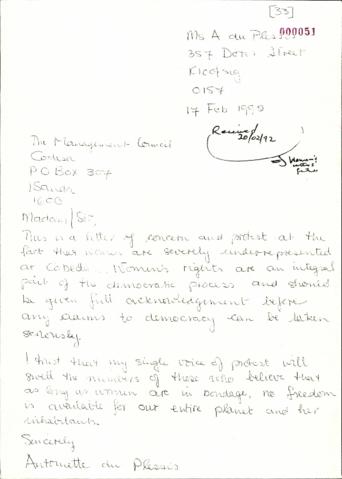 [33]
000051
Ms A du Plessis
357 Street
0157
17 Feb 1992
Received
20/02/92
The Management Council
Codesa
P O Box 307
Isando
1600
Madam/Sir,
This is a letter of concern and protest at the
fact that women are severely underrepresented
at Codesa. Women's rights are an integral
part of the democratic process and should
be given full acknowledgement before
any claims to democracy can be taken
seriously.
I trust that my single voice of protest will
swell the numbers of those who believe that
as long as women are in bondage, no freedom
is available for our entire planet and her
inhabitants.
Sincerely
Antoinette du Plessis